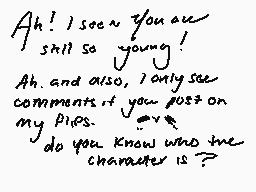 Ah! I see~ You are
still so young!
Ah. and also, I only see
comments if you post on
my Flips.
do you know who the
character is?